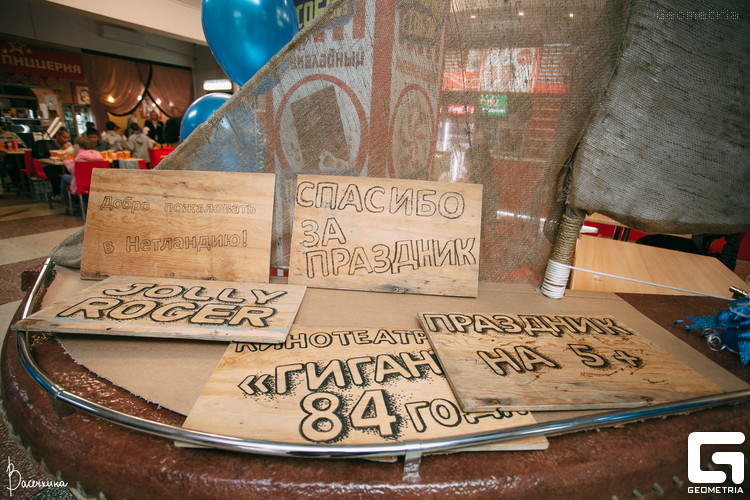 Geometria
ПИЦЦЕРИЯ
Добро пожаловать
в Нетландию!
СПАСИБО
ЗА
ПРАЗДНИК
JOLLY
ROGER
КИНОТЕАТР
«ГИГАН
84 ГОД
ПРАЗДНИК
НА 5+
Васечкина
G
GEOMETRIA